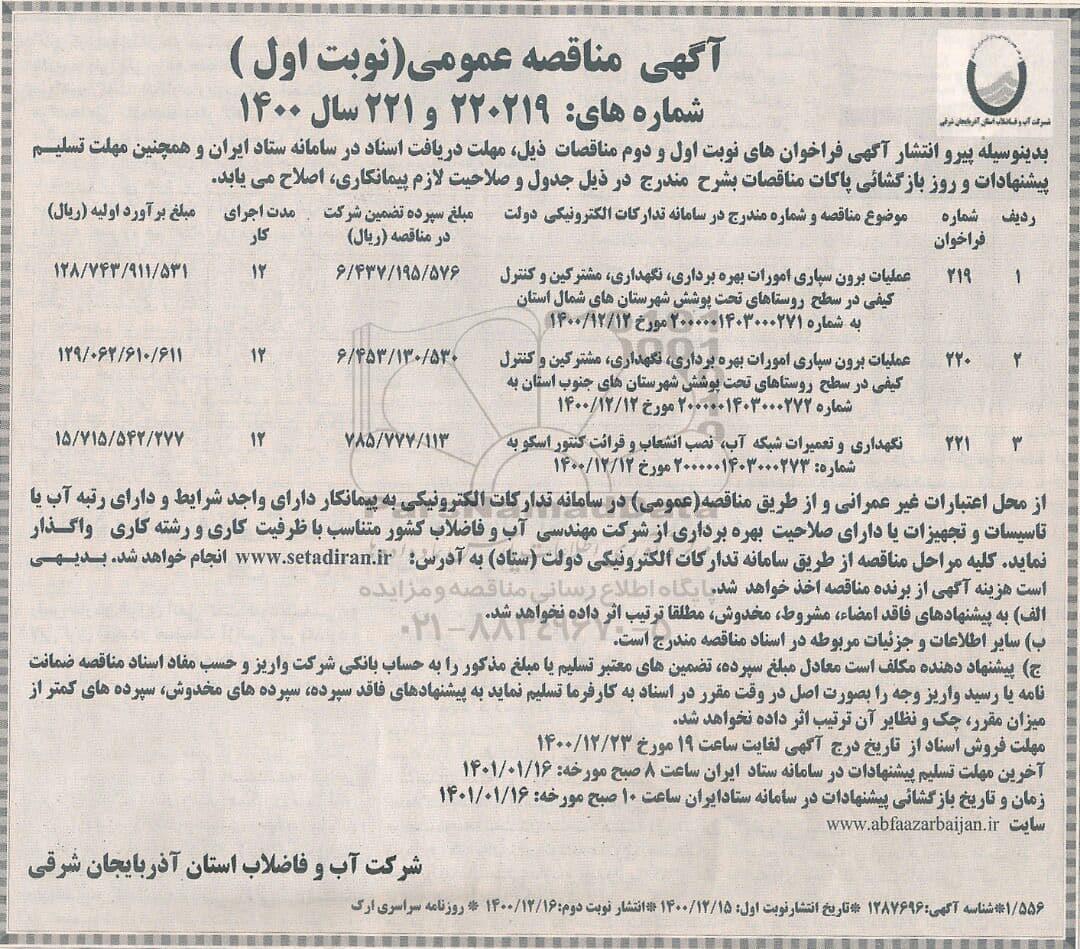 آگهی مناقصه عمومی(نوبت اول )
شماره های: ۲۲۰،۲۱۹ و ۲۲۱ سال ۱۴۰۰
شرکت آب و فاضلاب استان آذربایجان شرقی
بدینوسیله پیرو انتشار آگهی فراخوان های نوبت اول و دوم مناقصات ذیل، مهلت دریافت اسناد در سامانه ستاد ایران و همچنین مهلت تسلیم
پیشنهادات و روز بازگشائی پاکات مناقصات بشرح مندرج در ذیل جدول و صلاحیت لازم پیمانکاری، اصلاح می یابد.
ردیف شماره فراخوان موضوع مناقصه و شماره مندرج در سامانه تدارکات الکترونیکی دولت مبلغ سپرده تضمین شرکت در مناقصه (ریال) مدت اجرای کار مبلغ برآورد اولیه (ریال)
۱ ۲۱۹ عملیات برون سپاری امورات بهره برداری، نگهداری، مشترکین و کنترل ۶/۴۳۷/۱۹۵/۵۷۶ ۱۲ ۱۲۸/۷۴۳/۹۱۱/۵۳۱
کیفی در سطح روستاهای تحت پوشش شهرستان های شمال استان
به شماره ۲۰۰۰۰۰۱۴۰۳۰۰۰۲۷۱ مورخ ۱۴۰۰/۱۲/۱۲
۲ ۲۲۰ عملیات برون سپاری امورات بهره برداری، نگهداری، مشترکین و کنترل ۶/۴۵۳/۱۳۰/۵۳۰ ۱۲ ۱۲۹/۰۶۲/۶۱۰/۶۱۱
کیفی در سطح روستاهای تحت پوشش شهرستان های جنوب استان به
شماره ۲۰۰۰۰۰۱۴۰۳۰۰۰۲۷۲ مورخ ۱۴۰۰/۱۲/۱۲
۳ ۲۲۱ نگهداری و تعمیرات شبکه آب، نصب انشعاب و قرائت کنتور اسکو به ۷۸۵/۷۷۷/۱۱۳ ۱۲ ۱۵/۷۱۵/۵۴۲/۲۷۷
شماره: ۲۰۰۰۰۰۱۴۰۳۰۰۰۲۷۳ مورخ ۱۴۰۰/۱۲/۱۲
از محل اعتبارات غیر عمرانی و از طریق مناقصه(عمومی) در سامانه تدارکات الکترونیکی به پیمانکار دارای واجد شرایط و دارای رتبه آب یا
تاسیسات و تجهیزات یا دارای صلاحیت بهره برداری از شرکت مهندسی آب و فاضلاب کشور متناسب با ظرفیت کاری و رشته کاری واگذار
نماید. کلیه مراحل مناقصه از طریق سامانه تدارکات الکترونیکی دولت (ستاد) به آدرس: www.setadiran.ir انجام خواهد شد. بدیهی
است هزینه آگهی از برنده مناقصه اخذ خواهد شد.
الف) به پیشنهادهای فاقد امضاء، مشروط، مخدوش، مطلقا ترتیب اثر داده نخواهد شد.
ب) سایر اطلاعات و جزئیات مربوطه در اسناد مناقصه مندرج است.
ج) پیشنهاد دهنده مکلف است معادل مبلغ سپرده، تضمین های معتبر تسلیم یا مبلغ مذکور را به حساب بانکی شرکت واریز و حسب مفاد اسناد مناقصه ضمانت
نامه یا رسید واریز وجه را بصورت اصل در وقت مقرر در اسناد به کارفرما تسلیم نماید به پیشنهادهای فاقد سپرده، سپرده های مخدوش، سپرده های کمتر از
میزان مقرر، چک و نظایر آن ترتیب اثر داده نخواهد شد.
مهلت فروش اسناد از تاریخ درج آگهی لغایت ساعت ۱۹ مورخ ۱۴۰۰/۱۲/۲۳
آخرین مهلت تسلیم پیشنهادات در سامانه ستاد ایران ساعت ۸ صبح مورخه: ۱۴۰۱/۰۱/۱۶
زمان و تاریخ بازگشائی پیشنهادات در سامانه ستادایران ساعت ۱۰ صبح مورخه: ۱۴۰۱/۰۱/۱۶
سایت www.abfaazarbaijan.ir
شرکت آب و فاضلاب استان آذربایجان شرقی
۱/۵۵۶*شناسه آگهی:۱۲۸۷۶۹۶ *تاریخ انتشارنوبت اول: ۱۴۰۰/۱۲/۱۵ *انتشار نوبت دوم:۱۴۰۰/۱۲/۱۶ * روزنامه سراسری ارک
پایگاه اطلاع رسانی مناقصه و مزایده
۰۲۱-۸۸۳۴۹۶۷۰-۵